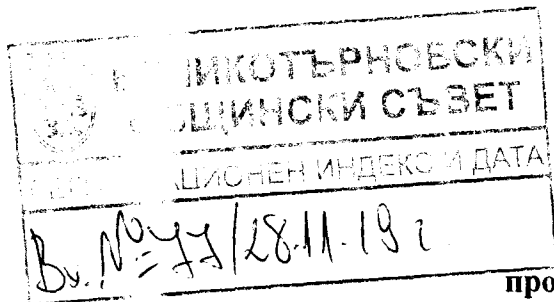 ВЕЛИКОТЪРНОВСКИ
ОБЩИНСКИ СЪВЕТ
РЕГИСТРАЦИОНЕН ИНДЕКС И ДАТА
Вх. № 77/28.11.19 г
про